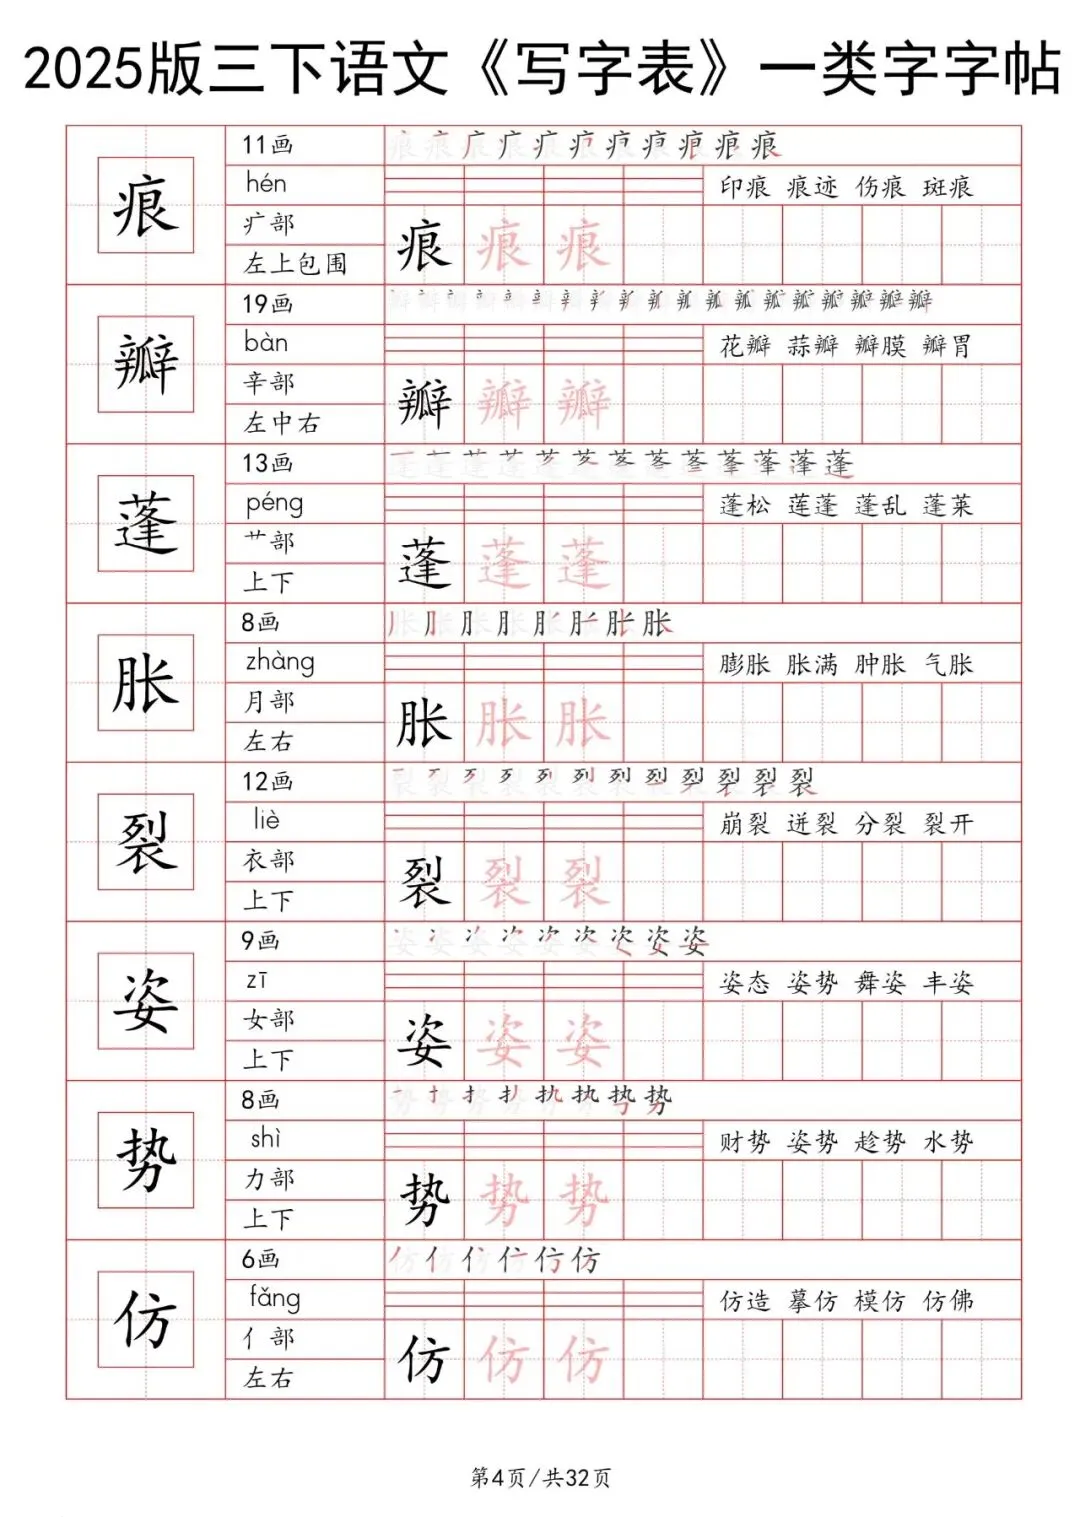 2025版三下语文《写字表》一类字字帖
痕
11画
hén
疒部
左上包围
印痕 痕迹 伤痕 斑痕
痕 痕 痕
瓣
19画
bàn
辛部
左中右
花瓣 蒜瓣 瓣膜 瓣胃
瓣 瓣 瓣
蓬
13画
péng
艹部
上下
蓬松 莲蓬 蓬乱 蓬莱
蓬 蓬 蓬
胀
8画
zhàng
月部
左右
膨胀 胀满 肿胀 气胀
胀 胀 胀
裂
12画
liè
衣部
上下
崩裂 迸裂 分裂 裂开
裂 裂 裂
姿
9画
zī
女部
上下
姿态 姿势 舞姿 丰姿
姿 姿 姿
势
8画
shì
力部
上下
财势 姿势 趁势 水势
势 势 势
仿
6画
fǎng
亻部
左右
仿造 摹仿 模仿 仿佛
仿 仿 仿
第4页/共32页